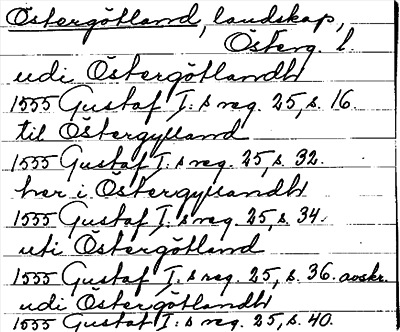 Östergötland, landskap,
Österg. l.
udi Östergötlandh
1555 Gustaf I:s reg. 25, s. 16.
til Östergylland
1555 Gustaf I:s reg. 25, s. 32.
her i Östergyllandh
1555 Gustaf I:s reg. 25, s. 34.
uti Östergötland
1555 Gustaf I:s reg. 25, s. 36. avskr.
udi Östergötlandh
1555 Gustaf I:s reg. 25, s. 40.